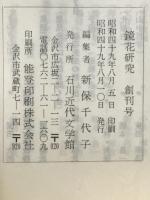 鏡花研究 創刊号
昭和四十九年八月五日 印刷
昭和四十九年八月一〇日 発行
編集者 新保千代子
発行所 石川近代文学館
金沢市広坂二-一-三 〒920
電話〇七六二-六二-
印刷所 能登印刷株式会社
金沢市武蔵町七-一四 〒920